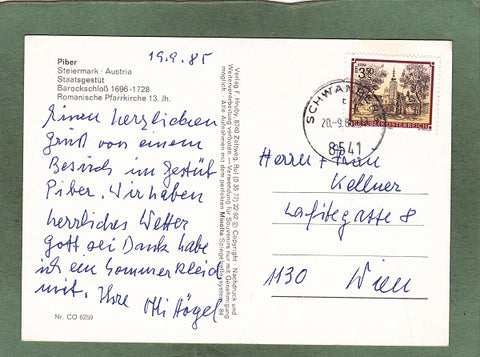 19.9.85
Piber
Steiermark · Austria
Staatsgestüt
Barockschloß 1696-1728
Romanische Pfarrkirche 13. Jh.
Einen herzlichen
Gruß von einem
Besuch im Gestüt
Piber. Wir haben
herrliches Wetter
Gott sei Dank habe
ich ein Sommerkleid
mit. Ihre
Nr. CO 6259
Weiterverarbeitung verboten — Verwendung für Souvenirs nur mit Genehmigung
möglich. Alle Aufnahmen mit dem perfekten Minolta Spiegelreflexsystem.
3.50
REPUBLIK ÖSTERREICH
20.-9.8
8541
Herrn + Frau
Kellner
Lafitegasse 8
1130 Wien